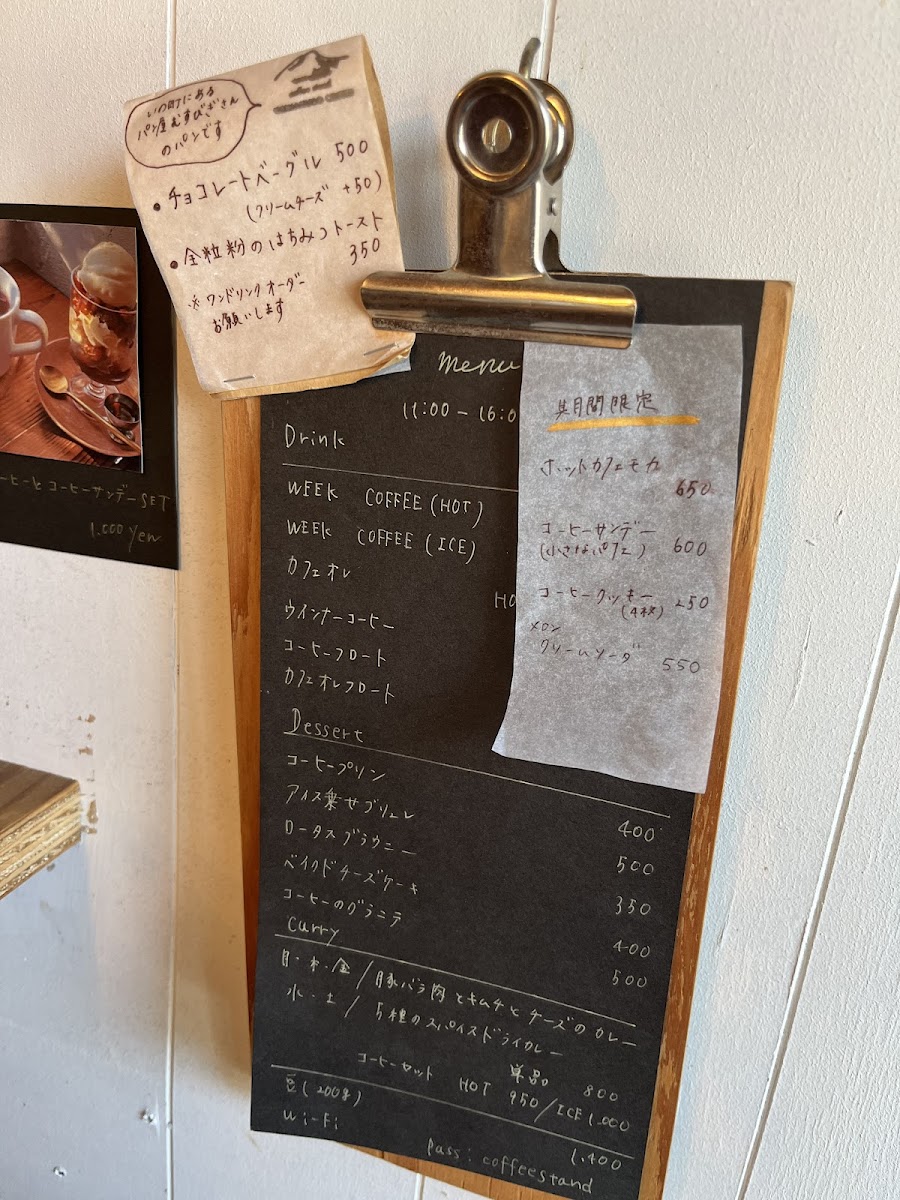 いの町にある
パン屋むすびぎさん
のパンです
• チョコレートベーグル 500
(クリームチーズ +50)
• 全粒粉のはちみつトースト
350
※ ワンドリンクオーダー
お願いします
ーヒーとコーヒーサンデーSET
1.000 yen
menu
11:00 - 16:0
Drink
WEEK COFFEE (HOT)
WEEK COFFEE (ICE)
カフェオレ
HO
ウインナーコーヒー
コーヒーフロート
カフェオレフロート
期間限定
ホットカフェモカ
650
コーヒーサンデー
(小さなパフェ) 600
コーヒークッキー
(4枚) 250
メロン
クリームソーダ 550
Dessert
コーヒープリン 400
アイス乗せブリュレ 500
ロータスブラウニー 350
ベイクドチーズケーキ 400
コーヒーのグラニテ 500
Curry
月・木・金 / 豚バラ肉とキムチとチーズのカレー
水・土 / 5種のスパイスドライカレー
単品 800
コーヒーセット HOT 950 / ICE 1.000
豆 (200g) 1.400
Wi-Fi pass: coffeestand